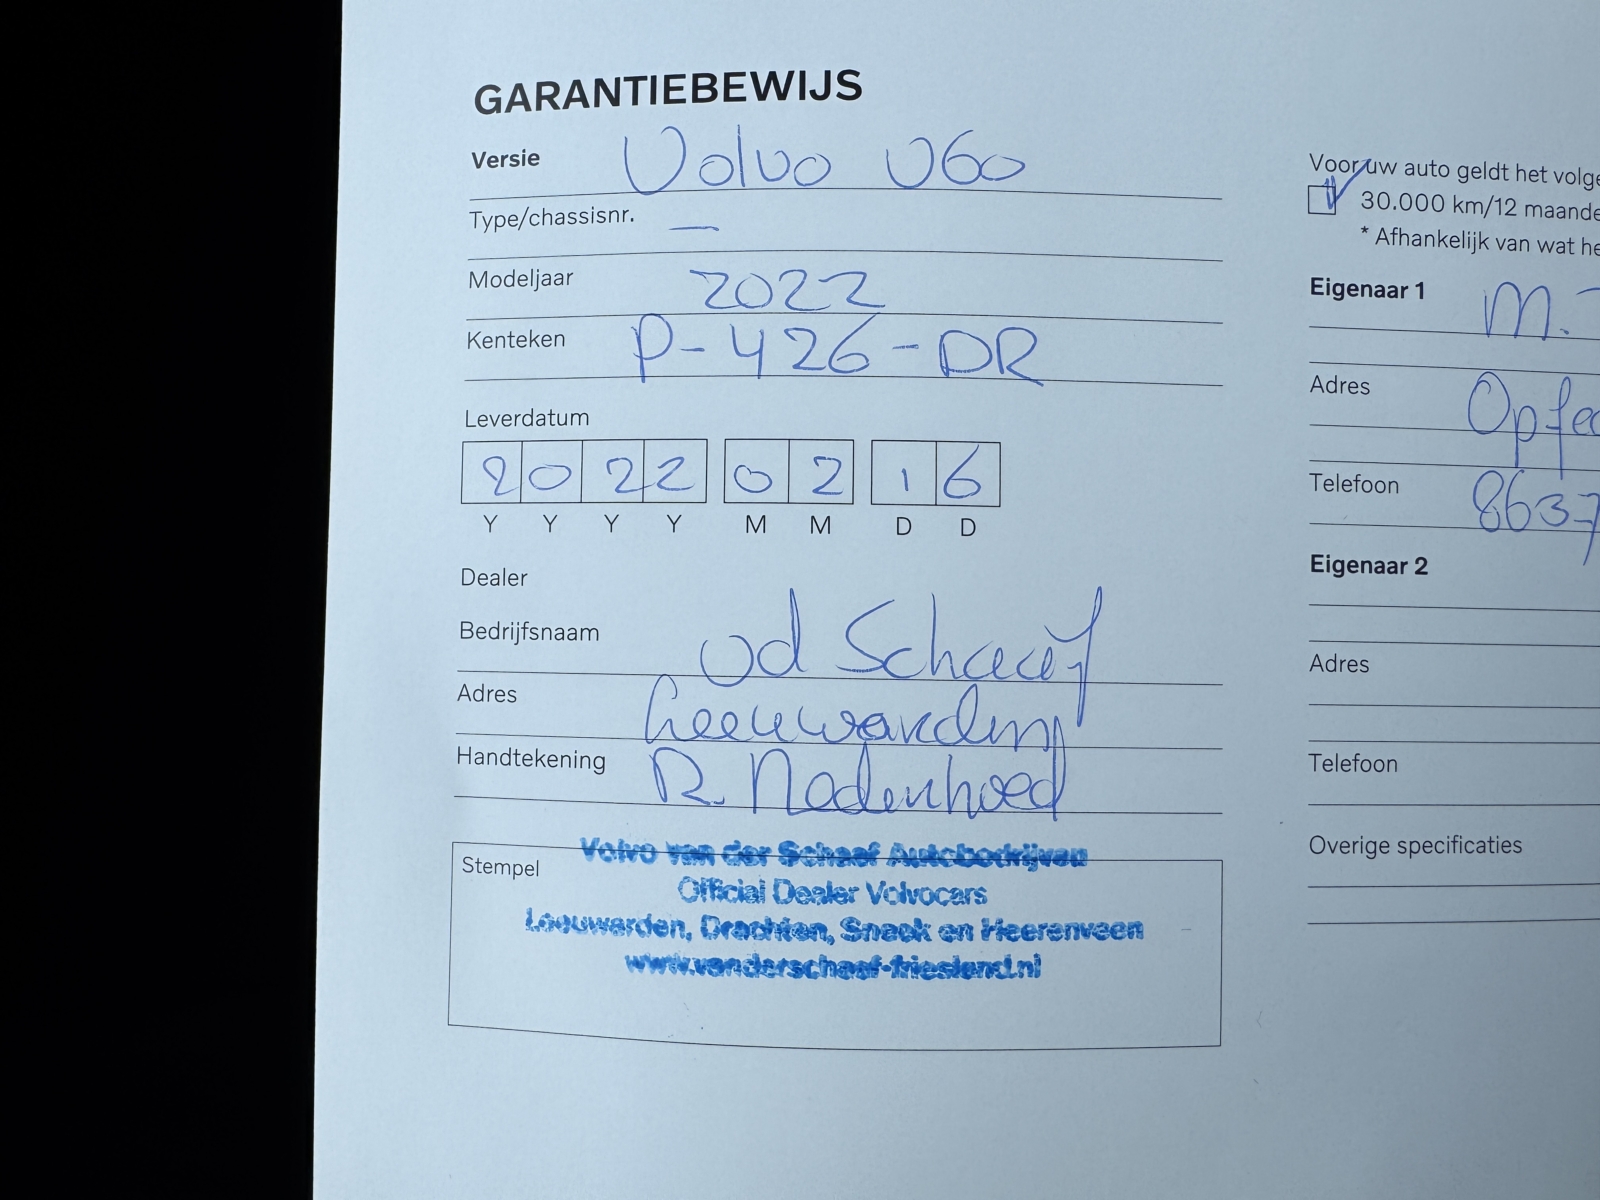 GARANTIEBEWIJS
Versie Volvo V60
Type/chassisnr. —
Modeljaar 2022
Kenteken P-426-DR
Leverdatum
2 0 2 2 0 2 1 6
Y Y Y Y M M D D
Dealer
Bedrijfsnaam vd Schaaf
Adres Leeuwarden
Handtekening R.
Stempel
Volvo van der Schaaf Autobedrijven
Official Dealer Volvocars
Leeuwarden, Drachten, Sneek en Heerenveen
www.vanderschaaf-friesland.nl
Voor uw auto geldt het volge
30.000 km/12 maande
* Afhankelijk van wat he
Eigenaar 1 M.
Adres Opfe
Telefoon 8637
Eigenaar 2
Adres
Telefoon
Overige specificaties